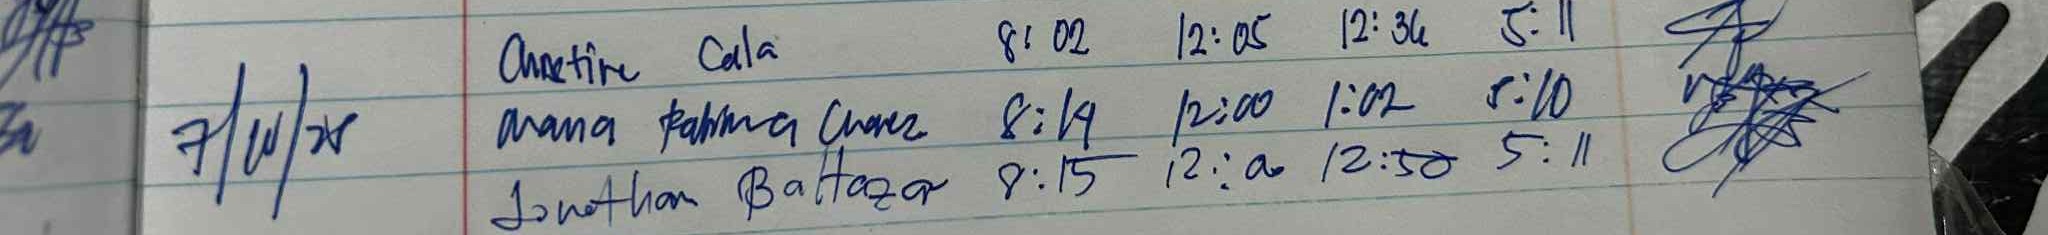 Christine Cala 8:02 12:05 12:36 5:11
7/10/25 Maria Fatima Chavez 8:14 12:00 1:02 5:10
Jonathan Baltazar 8:15 12:00 12:50 5:11